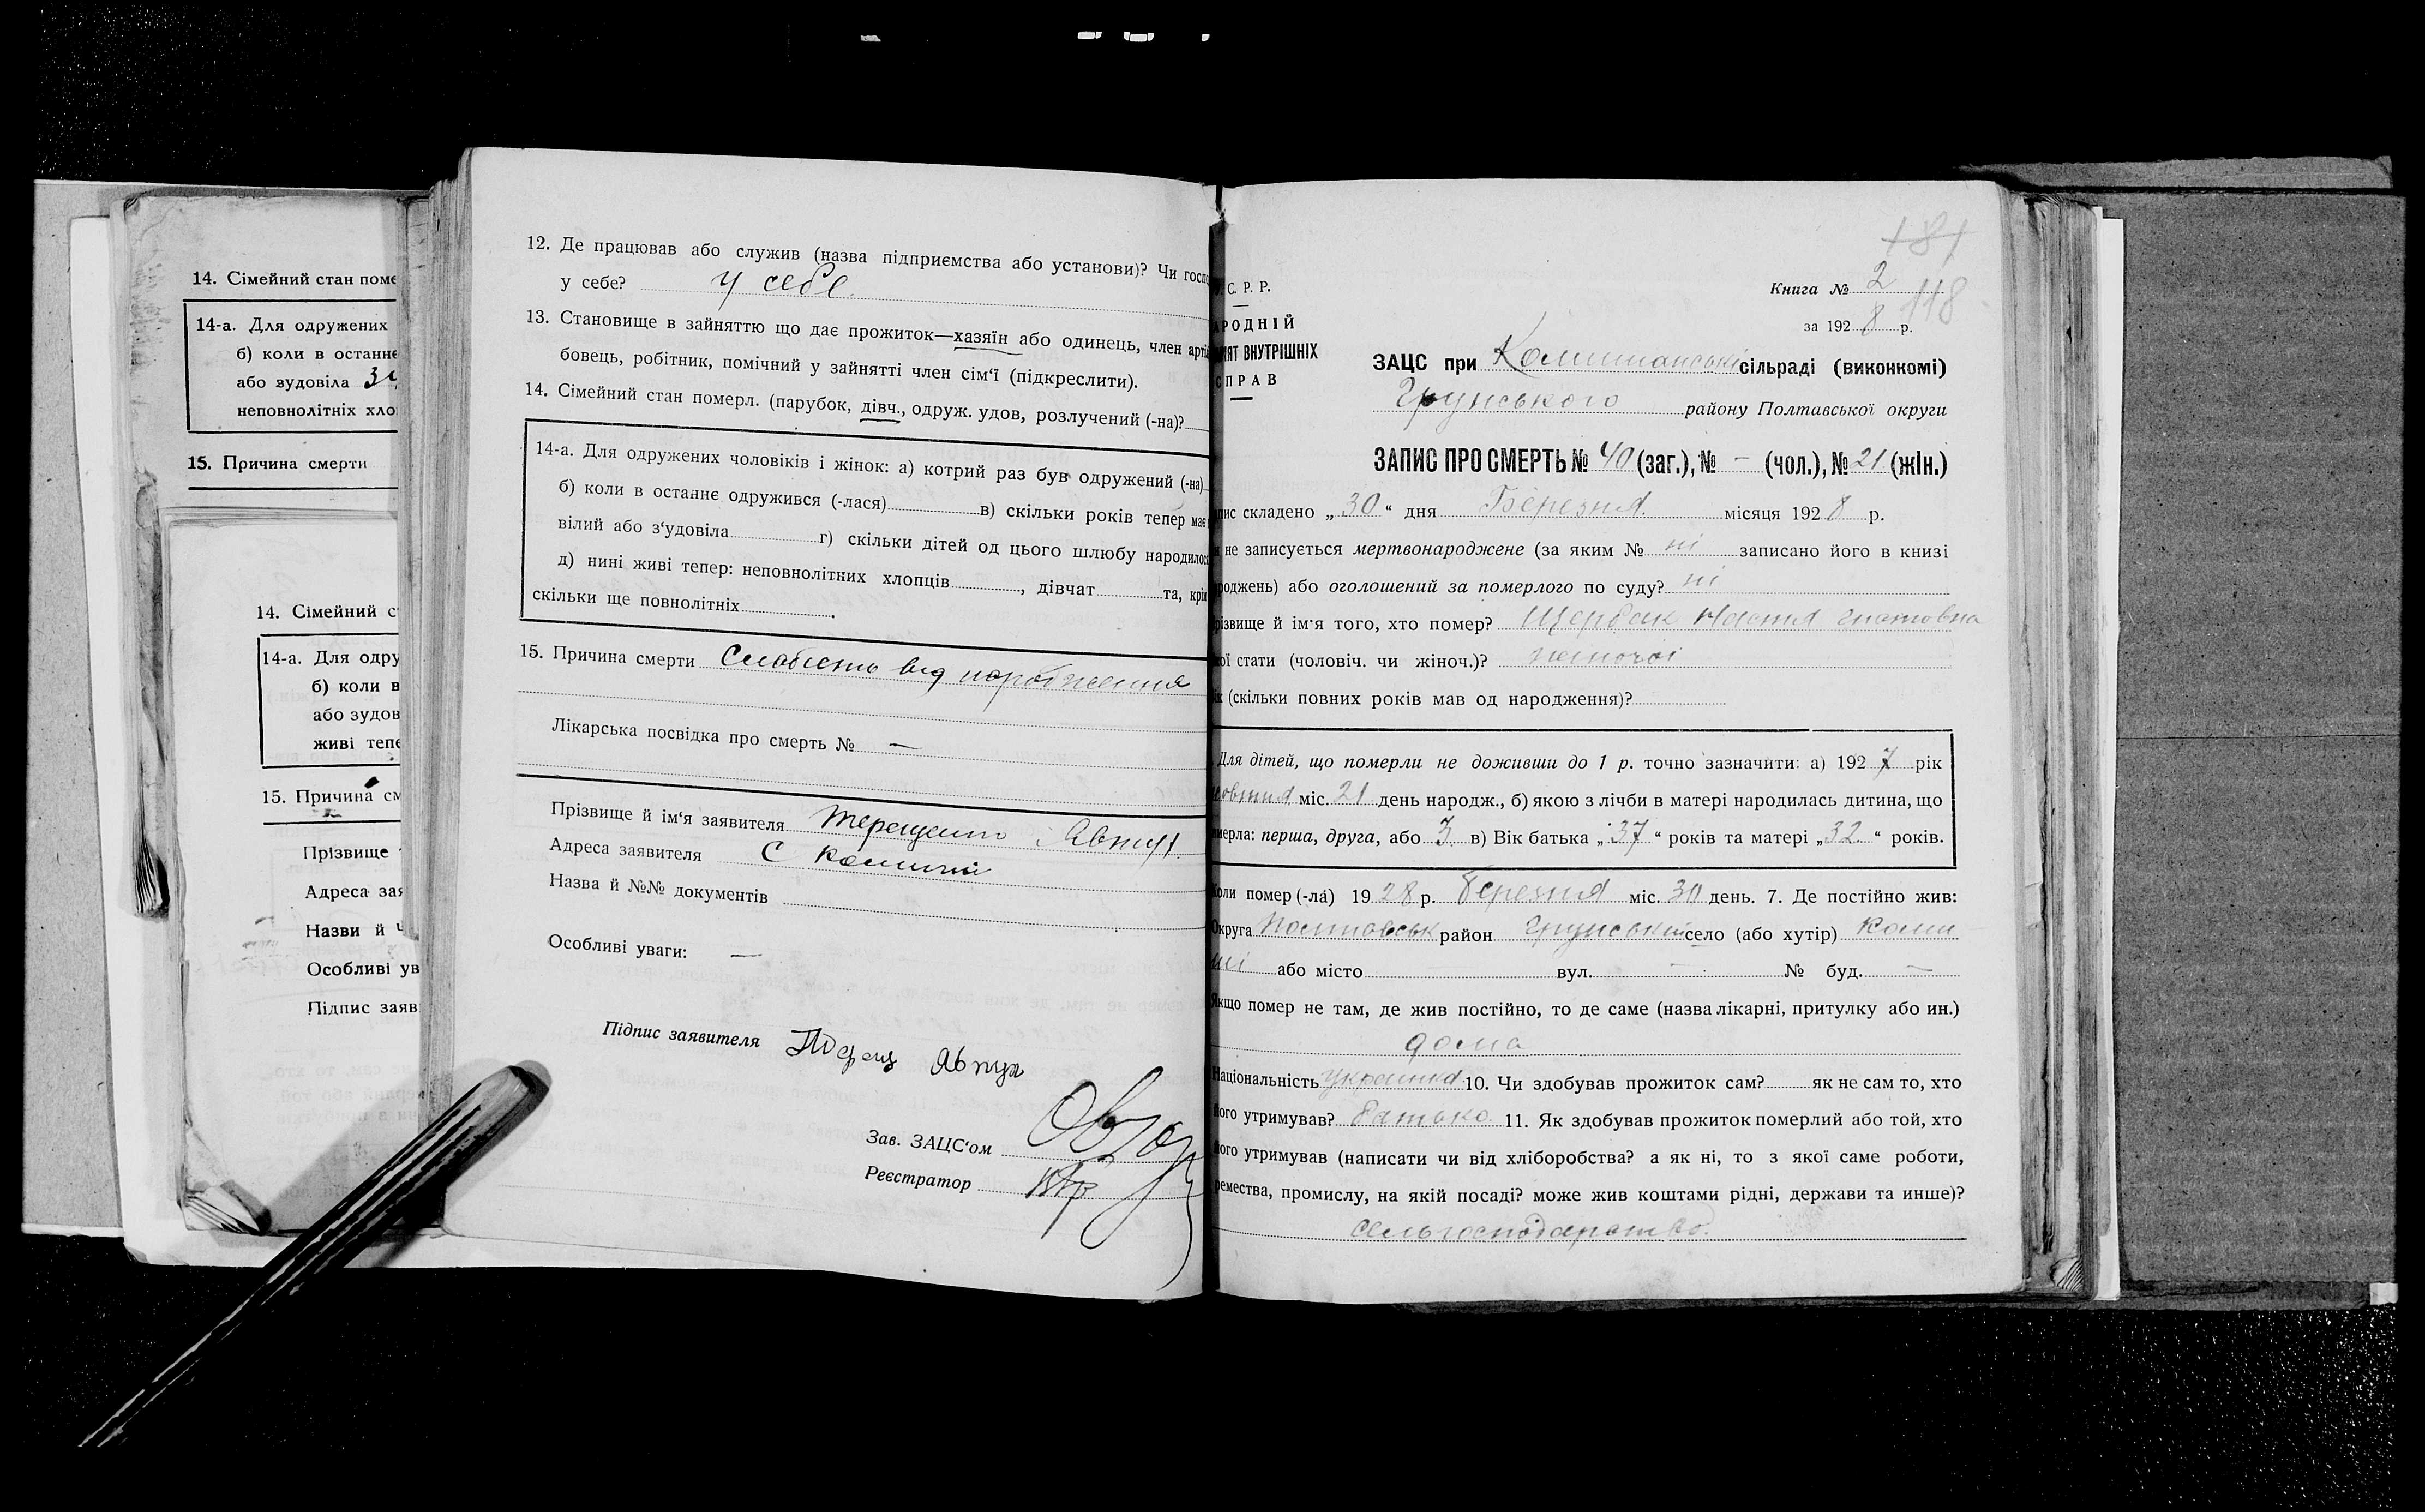 14. Сімейний стан поме
14-а. Для одружених
б) коли в останнє
або зудовіла
неповнолітніх хло
15. Причина смерти
14. Сімейний с
14-а. Для одру
б) коли в
або зудов
живі тепе
15. Причина см
Прізвище
Адреса зая
Назви й
Особливі ув
Підпис заяв
12. Де працював або служив (назва підприємства або установи)? Чи госп
у себе? у себе.
13. Становище в зайняттю що дає прожиток—хазяїн або одинець, член арті
бовець, робітник, помічний у зайнятті член сім'ї (підкреслити).
14. Сімейний стан померл. (парубок, дівч., одруж. удов, розлучений (-на)?
14-а. Для одружених чоловіків і жінок: а) котрий раз був одружений (-на)
б) коли в останнє одружився (-лася) в) скільки років тепер має
вілий або з'удовіла г) скільки дітей од цього шлюбу народилось
д) нині живі тепер: неповнолітних хлопців , дівчат та, крім
скільки ще повнолітніх .
15. Причина смерти Слабість від народження
Лікарська посвідка про смерть № —
Прізвище й ім'я заявителя Терещенко
Адреса заявителя С Комиші
Назва й №№ документів
Особливі уваги: —
Підпис заявителя
Зав. ЗАЦС'ом
Реєстратор
С. Р. Р.
АРОДНІЙ
ІЯТ ВНУТРІШНІХ
СПРАВ
181
Книга № 2
118
за 192 8 р.
ЗАЦС при Комишанські сільраді (виконкомі)
Грунського району Полтавської округи
ЗАПИС ПРО СМЕРТЬ № 40 (заг.), № – (чол.), № 21 (жін.)
пис складено „ 30 “ дня Березня місяця 192 8 р.
и не записується мертвонароджене (за яким № ні записано його в книзі
роджень) або оголошений за померлого по суду? ні
різвище й ім'я того, хто помер? Щербак Настя Гнатовна
ої стати (чоловіч. чи жіноч.)? жіночої
ік (скільки повних років мав од народження)?
Для дітей, що померли не доживши до 1 р. точно зазначити: а) 192 7 рік
жовтня міс. 21 день народж., б) якою з лічби в матері народилась дитина, що
мерла: перша, друга, або 3 в) Вік батька „ 37 “ років та матері „ 32 “ років.
Коли помер (-ла) 19 28 р. березня міс. 30 день. 7. Де постійно жив:
Округа Полтавськ район Грунський село (або хутір) Коми
ші або місто — вул. — № буд. —
Якщо помер не там, де жив постійно, то де саме (назва лікарні, притулку або ин.)
дома
Національність україн 10. Чи здобував прожиток сам? як не сам то, хто
його утримував? батько 11. Як здобував прожиток померлий або той, хто
його утримував (написати чи від хліборобства? а як ні, то з якої саме роботи,
ремества, промислу, на якій посаді? може жив коштами рідні, держави та инше)?
Сельгосподарство.